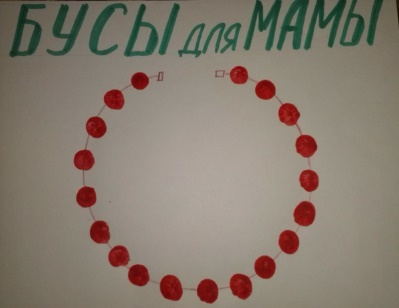 БУСЫ для МАМЫ